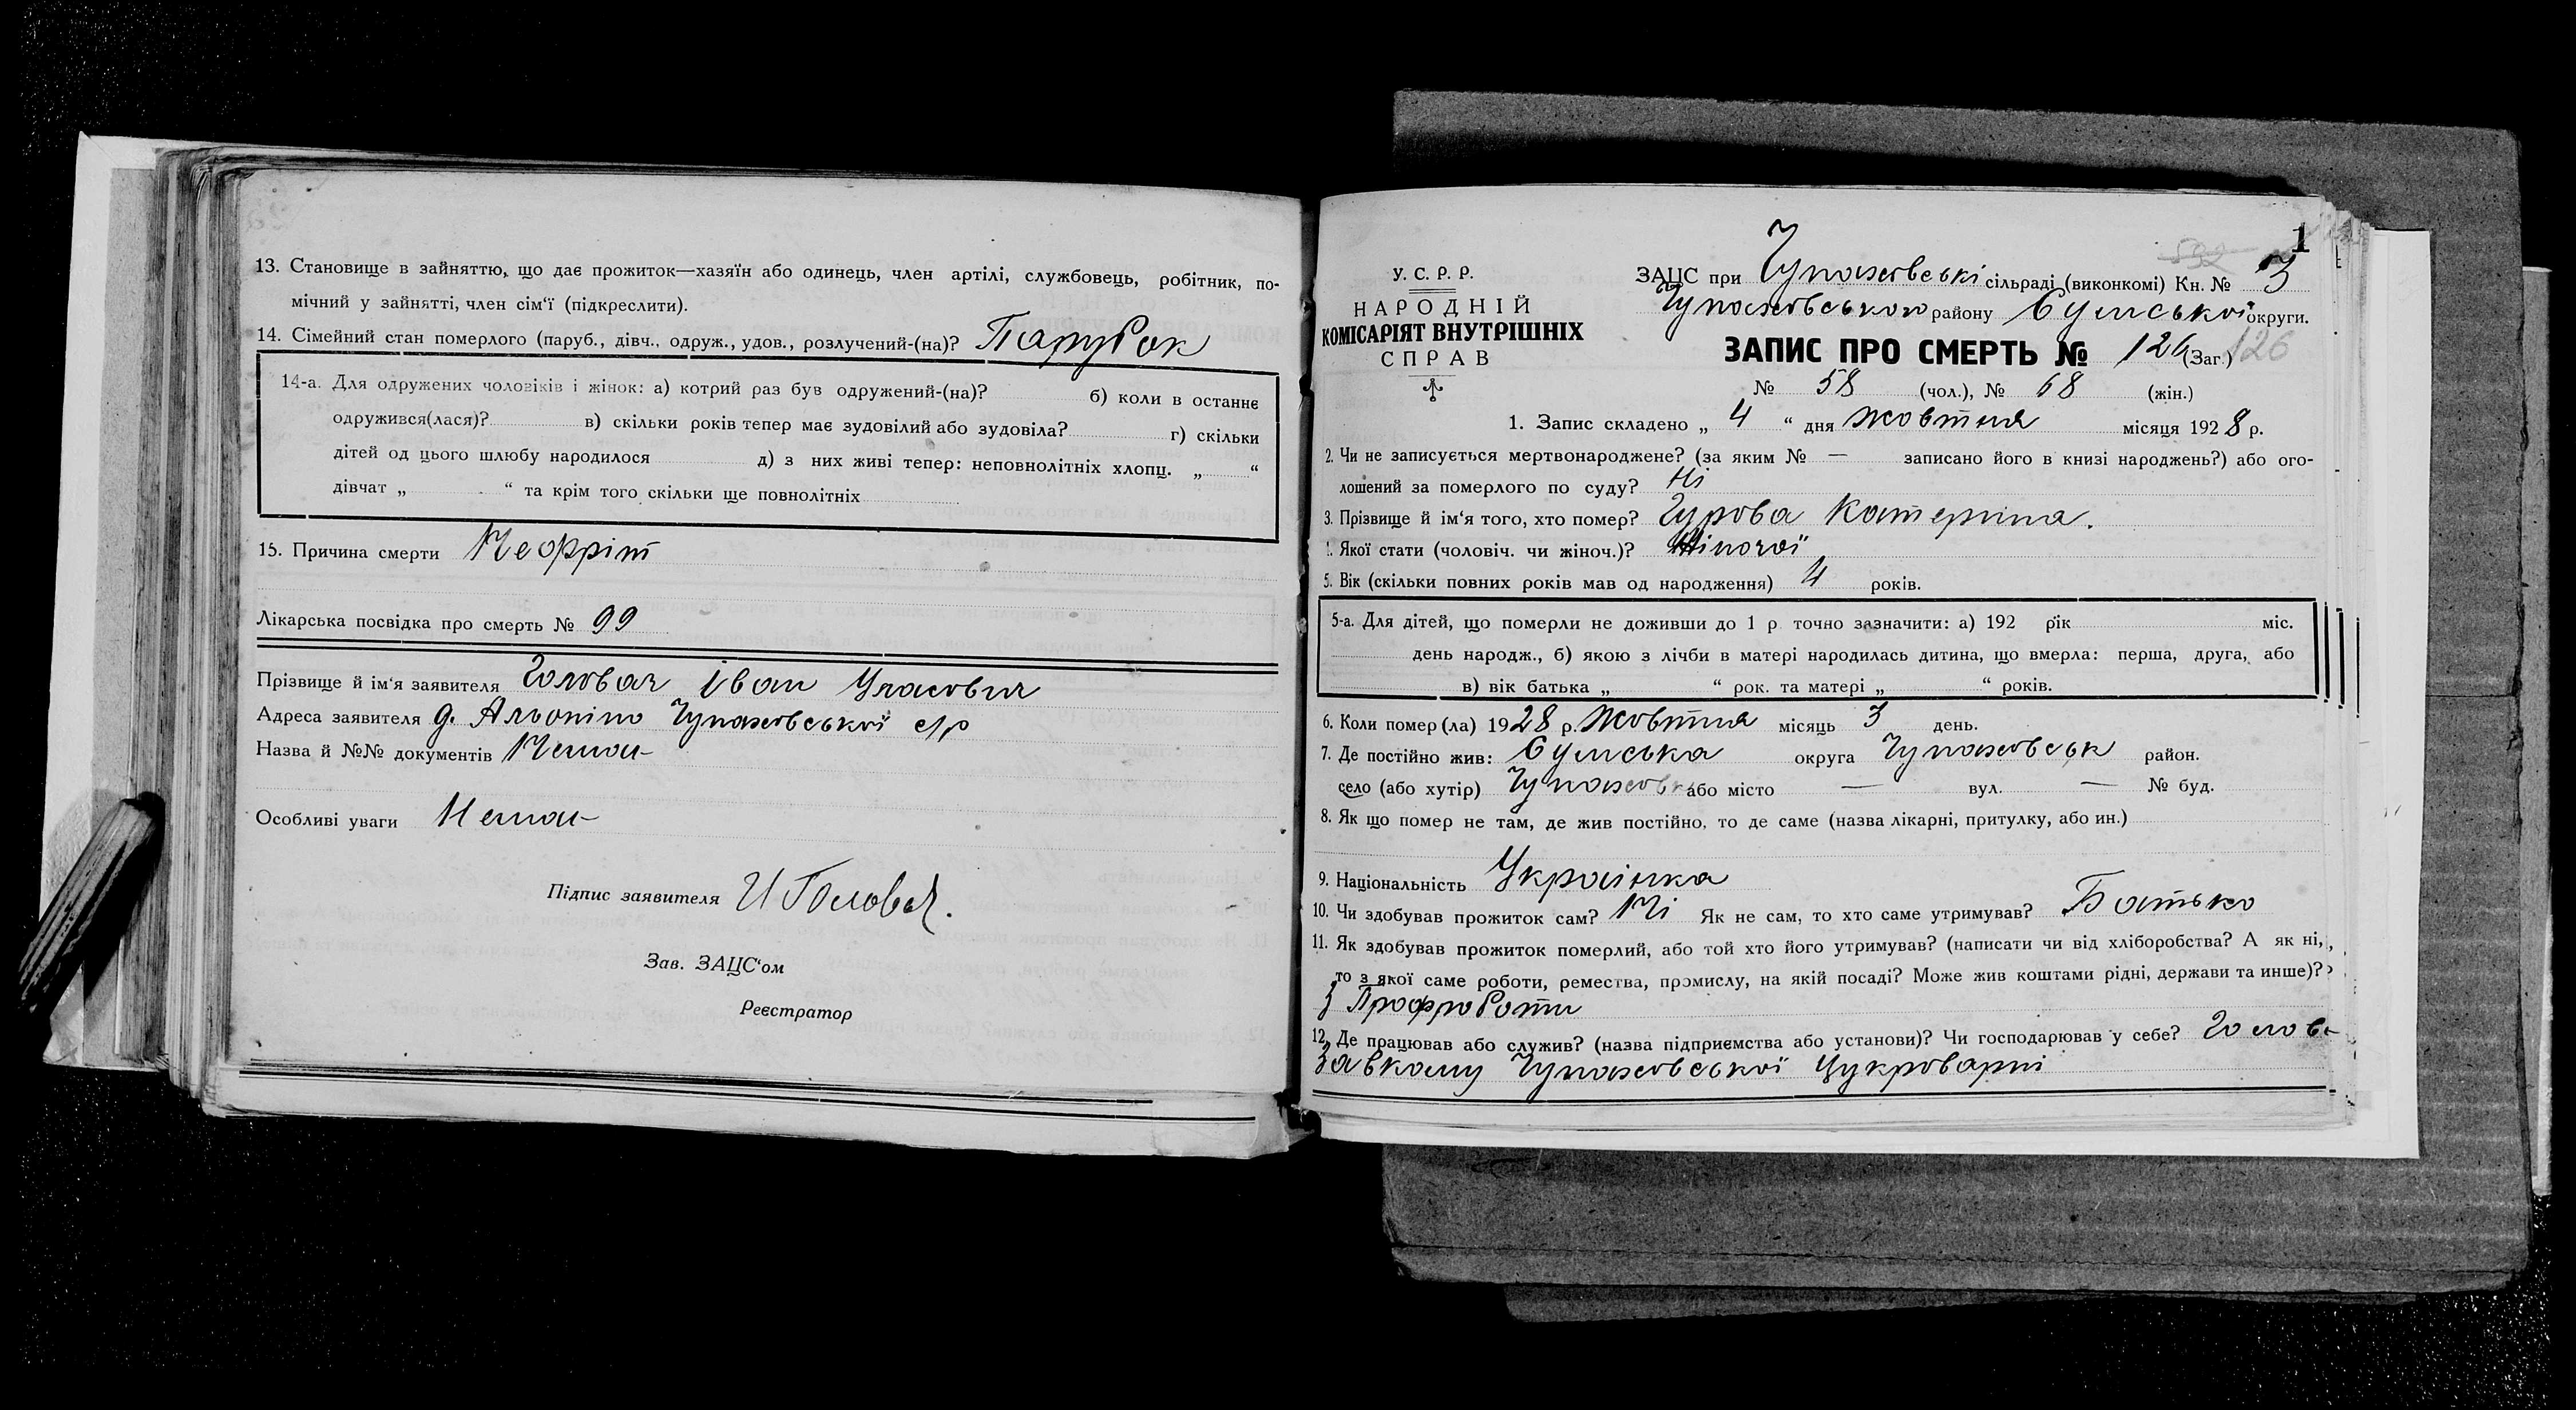 13. Становище в зайняттю, що дає прожиток—хазяїн або одинець, член артілі, службовець, робітник, по-
мічний у зайнятті, член сім‘ї (підкреслити).
14. Сімейний стан померлого (паруб., дівч., одруж., удов., розлучений-(на)? Парубок
14-а. Для одружених чоловіків і жінок: а) котрий раз був одружений-(на)? б) коли в останнє
одружився(лася)? в) скільки років тепер має зудовілий або зудовіла? г) скільки
дітей од цього шлюбу народилося д) з них живі тепер: неповнолітніх хлопц. „ “
дівчат „ “ та крім того скільки ще повнолітніх
15. Причина смерти Нефріт
Лікарська посвідка про смерть № 99
Прізвище й ім‘я заявителя Головач Іван Уласович
Адреса заявителя Чупахівської с/р
Назва й №№ документів Немає
Особливі уваги Немає
Підпис заявителя И Головач.
Зав. ЗАЦС‘ом
Реєстратор
1
592
У. С. Р. Р.
НАРОДНІЙ
КОМІСАРІЯТ ВНУТРІШНІХ
СПРАВ
ЗАЦС при Чупахівські сільраді (виконкомі) Кн. № 3
Чупахівського району Сумської округи.
ЗАПИС ПРО СМЕРТЬ № 126 (Заг.) 126
№ 58 (чол.), № 68 (жін.)
1. Запис складено „ 4 “ дня жовтня місяця 1928 р.
2. Чи не записується мертвонароджене? (за яким № — записано його в книзі народжень?) або ого-
лошений за померлого по суду? Ні
3. Прізвище й ім‘я того, хто помер? Гурова Катерина.
4. Якої стати (чоловіч. чи жіноч.)? Жіночої
5. Вік (скільки повних років мав од народження) 4 років.
5-а. Для дітей, що померли не доживши до 1 р точно зазначити: а) 192 рік міс.
день народж., б) якою з лічби в матері народилась дитина, що вмерла: перша, друга, або
в) вік батька „ “ рок. та матері „ “ років.
6. Коли помер (ла) 1928 р. Жовтня місяць 3 день.
7. Де постійно жив: Сумська округа Чупахівськ район.
село (або хутір) Чупахівк або місто — вул. — № буд.
8. Як що помер не там, де жив постійно, то де саме (назва лікарні, притулку, або ин.)
9. Національність Українка
10. Чи здобував прожиток сам? Ні Як не сам, то хто саме утримував? Батько
11. Як здобував прожиток померлий, або той хто його утримував? (написати чи від хліборобства? А як ні,
то з якої саме роботи, ремества, промислу, на якій посаді? Може жив коштами рідні, держави та инше)?
з Профроботи
12. Де працював або служив? (назва підприємства або установи)? Чи господарював у себе? Голов.
Завкому Чупахівської Цукроварні